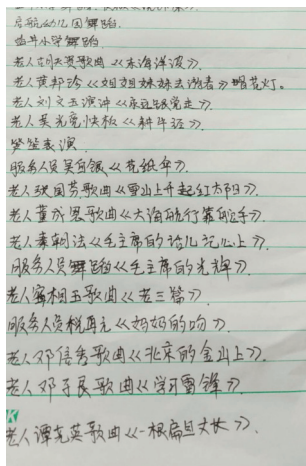 启航幼儿园舞蹈.
小学舞蹈
老人 歌曲《东海洋波》
老人黄邦珍《姐姐妹妹去淌者》唱花灯。
老人刘文玉演沖《永远跟党走》.
老人吴光亮快板《耕牛谣》.
表演.
服务人员吴自银《花纸伞》.
老人 国芬歌曲《雪山上升起红太阳》.
老人董成恩歌曲《大海航行靠舵手》.
老人秦朝法《毛主席的话儿记心上》.
服务人员舞蹈《毛主席的光辉》.
老人 相玉歌曲《老三篇》
服务人员税再元《妈妈的吻》.
老人邓信秀歌曲《北京的金山上》.
老人邓子民歌曲《学习雷锋》.
老人谭克英歌曲《一根扁旦丈长》.